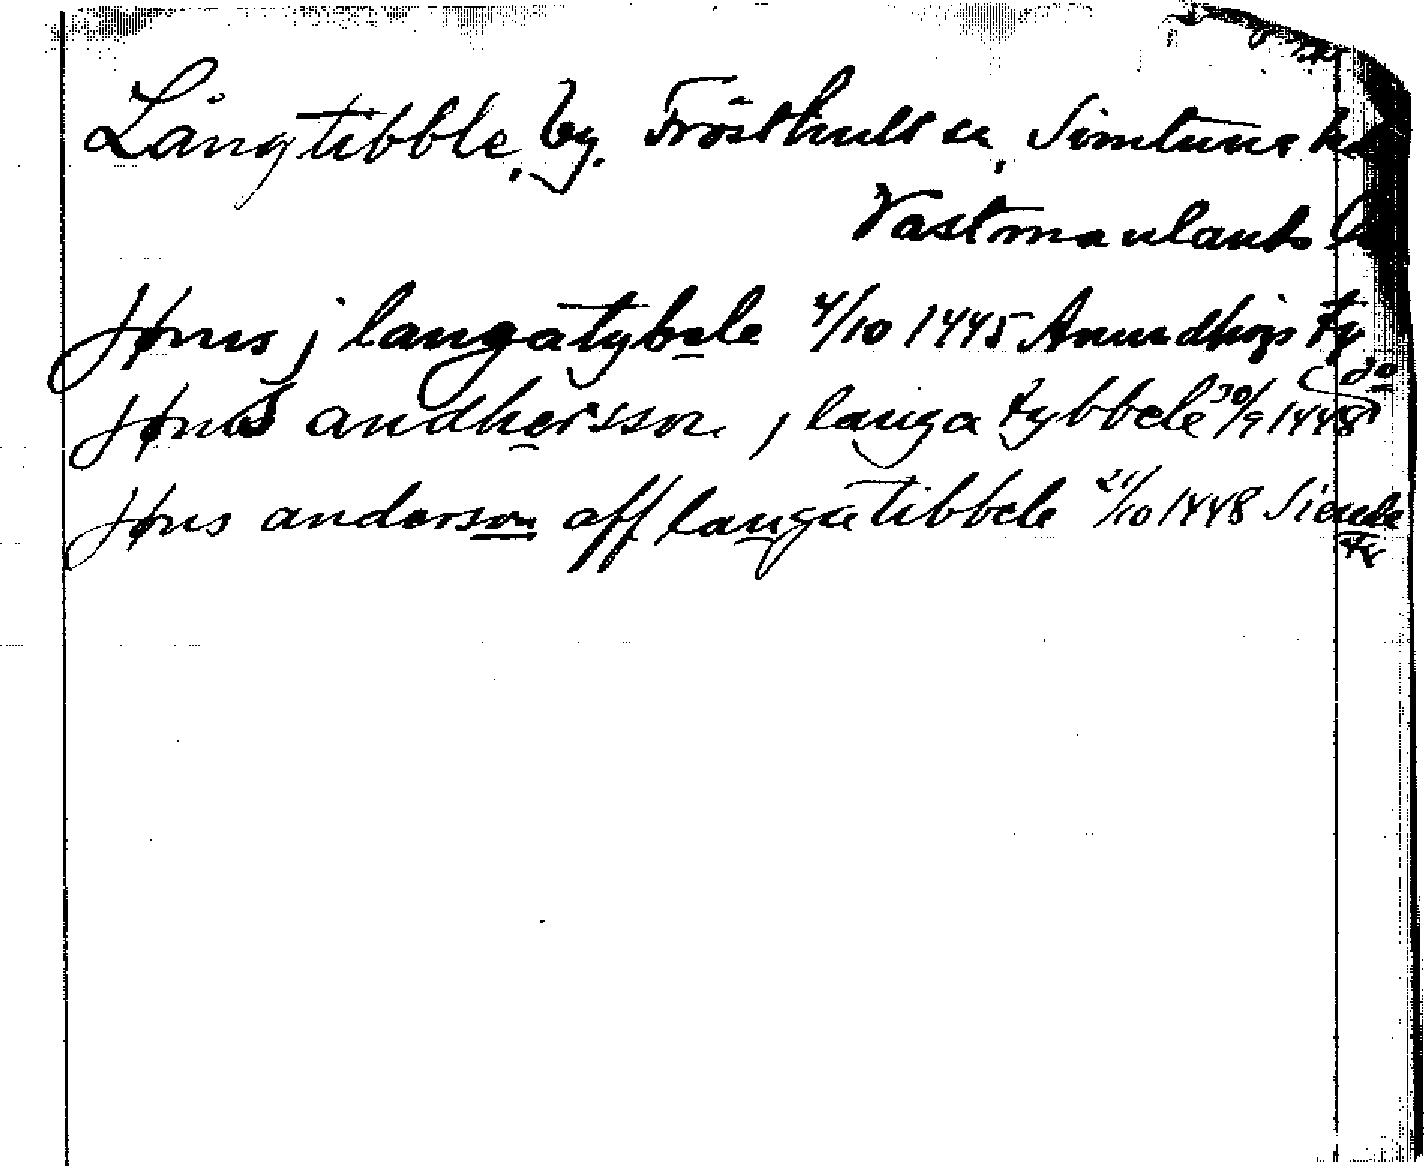 Långtibble, by. Frösthult sn, Simtuna hd
Västmanlands län
Jøns j langatybele 4/10 1445 Anundhögs ty
do
Jønis andhersson j langa tybbele 30/9 1448
Jøns anderson aff langatibbele 21/10 1448 Siende
ty